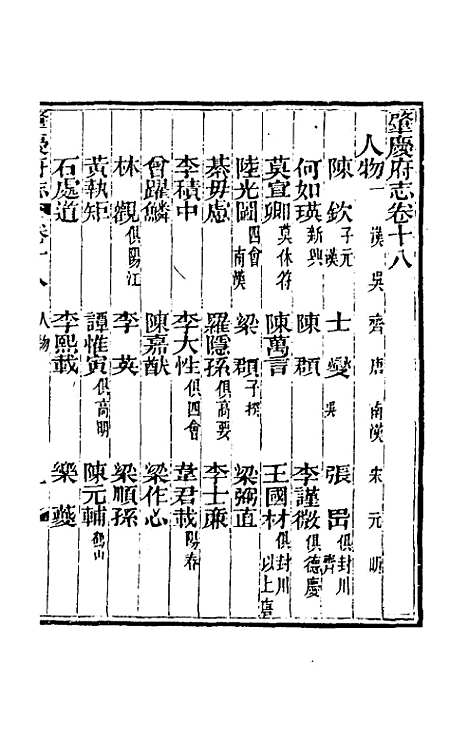 肇慶府志卷十八
人物一 漢 吳 齊 唐 南漢 宋 元 明
陳欽 子元 漢 士燮 吳 張𠷎 俱封川 齊
何如瑛 新興 陳頵 李謹微 俱德慶
莫宣卿 莫休符 陳萬言 王國材 俱封川 以上唐
陸光圖 四會 南漢 梁頵 子撰 梁弼直
綦毋慮 羅隱孫 俱高要 李士廉
李積中 李大性 俱四會 韋君載 陽春
曾躍鱗 陳嘉猷 梁作心
林觀 俱陽江 李英 梁順孫
黃執矩 譚惟寅 俱高明 陳元輔 鶴山
石處道 李熙載 欒夔
肇慶府志 卷十八 人物